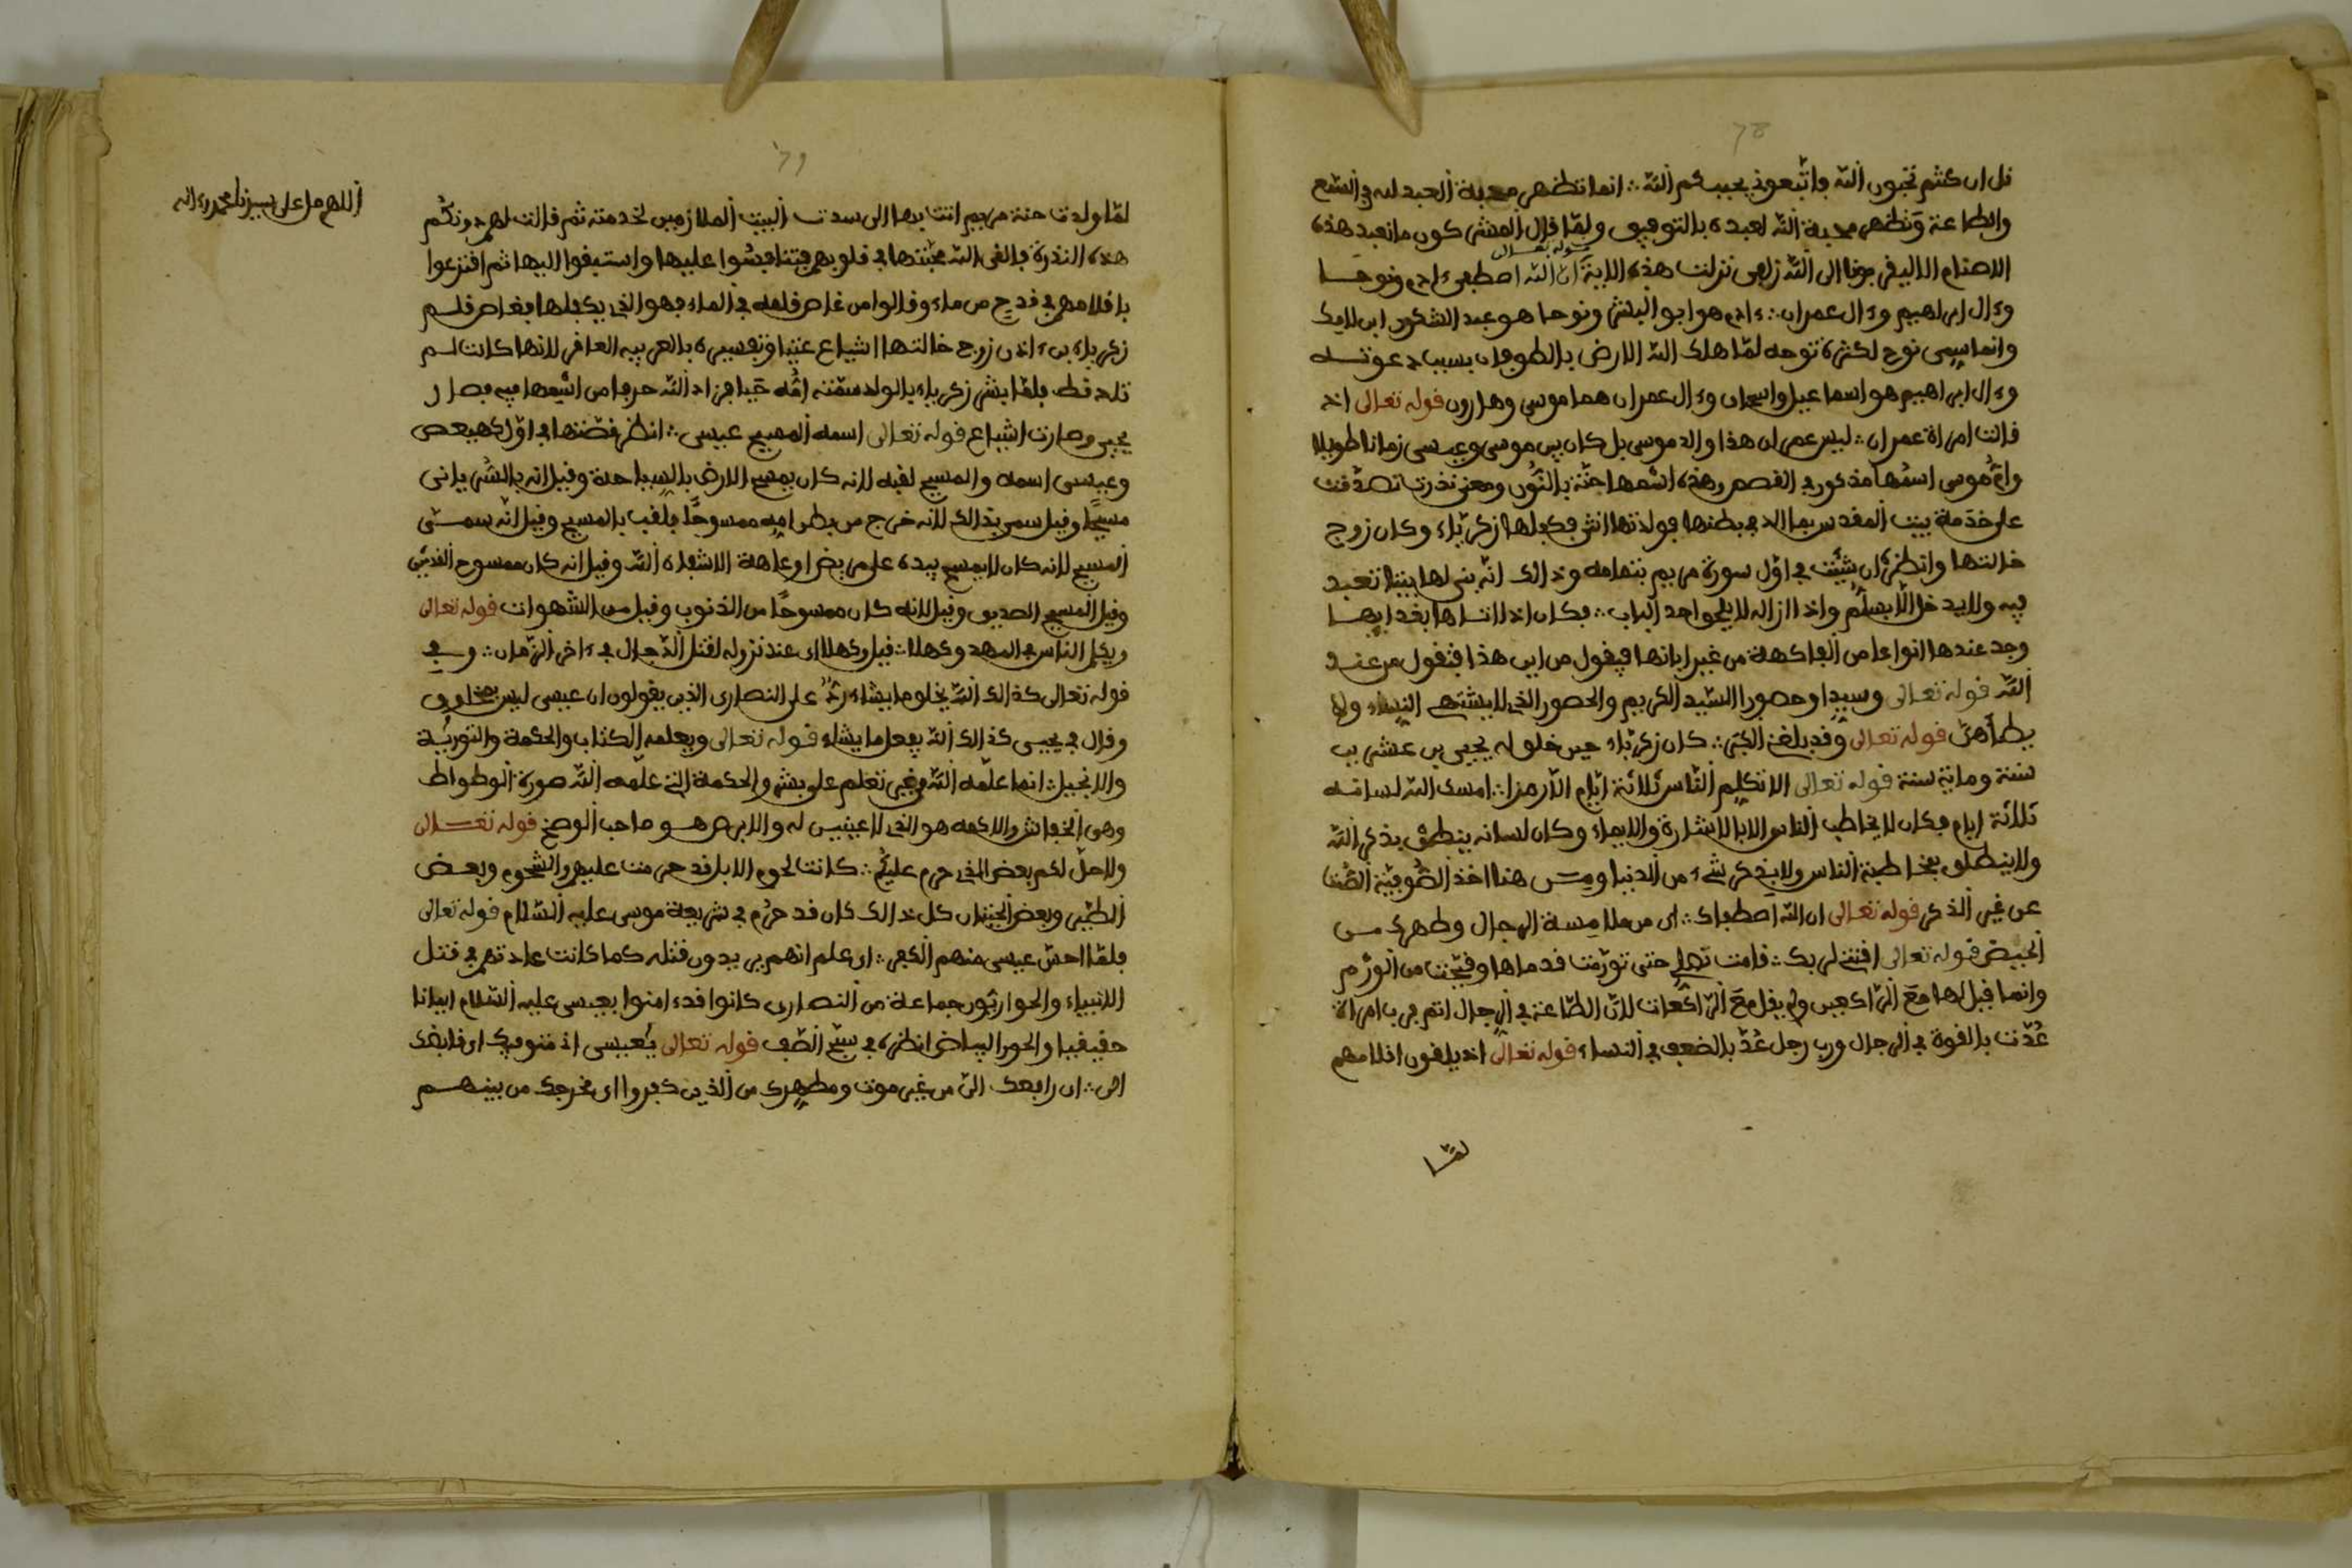 78
قل ان كنتم تحبون الله فاتبعوني يحببكم الله ؞ انما تظهر محبة العبد لله في السمع
والطاعة وتظهر محبة الله لعبده بالتوفيق ولما قال المشركون ما نعبد هذه
قوله تعالى
الاصنام الا ليقربونا الى الله زلفى نزلت هذه الاية ان الله اصطفى ءادم ونوحا
وءال ابراهيم وءال عمران ؞ ءادم هو ابو البشر ونوحا هو عبد الشكور ابن لامك
وانما سمي نوح لكثرة نوحه لما هلك الله الارض بالطوفان بسبب دعوته
وءال ابراهيم هو اسماعيل واسحان وءال عمران هما موسى وهارون قوله تعالى اذ
قالت امراة عمران ؞ ليس عمران هذا والد موسى بل كان بين موسى وعيسى زمانا طويلا
وام موسى اسمها مذكور في القصص وهذه اسمها حنة بالنون ومعنى نذرت تصدقت
على خدمة بيت المقدس بما لاد في بطنها فولدتها انثى فكفلها زكرياء وكان زوج
خالتها وانظره ان شيت في اول سورة مريم بتمامه وذالك انه بنى لها بيتا تعبد
فيه ولا يدخل الا بسلم واذا ازاله لا يلجوا احد الباب ؞ فكان اذا اتاها بغدايها
وجد عندها انواعا من الفاكهة من غير ابانها فيقول من اين هذا فتقول من عند
الله قوله تعالى وسيدا وحصورا السيد الكريم والحصور الذي لا يشتهي النساء ولا
يطأهن قوله تعالى وقد بلغني الكبر ؞ كان زكرياء حين خلق له يحيى بن عشرين
سنة وماية سنة قوله تعالى الا تكلم الناس ثلاثة ايام الا رمزا ؞ امسك الله لسانه
ثلاثة ايام فكان لا يخاطب الناس الا بالاشارة والايماء وكان لسانه ينطق بذكر الله
ولا ينطلق بمخاطبة الناس ولا يذكر شيء من الدنيا ومن هنا اخذ الصوفية الصمت
عن غير الذكر قوله تعالى ان الله اصطفاك ؞ اي من ملامسة الرجال وطهرك من
الحيض قوله تعالى اقنتي لربك ؞ قامت تصلي حتى تورمت قدماها وقيحت من الورم
وانما قيل لها مع الراكعين ولم يقل مع الراكعات لان الطاعة في الرجال اتم فرب امراة
عدت بالقوة في الرجال ورب رجل عد بالضعف في النساء قوله تعالى اذ يلقون اقلامهم
لما
79
لما ولدت حنة مريم اتت بها الى سدت البيت الملازمين لخدمته ثم قالت لهم دونكم
هذه النذرة فالقى الله محبتها في قلوبهم فتنافسوا عليها واستبقوا اليها ثم اقترعوا
باقلامهم في قدح من ماء وقالوا من غاص قلمه في الماء فهو الذي يكفلها فغاص قلم
زكرياء بن ءاذن زوج خالتها اشياع عتيا وتفسيره بالعربيه العاقر لانها كانت لم
تلد قط فلما بشر زكرياء بالولد سمته امه حيا فزاد الله حرفا من اسمها فيه فصار
يحيى وصارت اشباع قوله تعالى اسمه المسيح عيسى ؞ انظر قصتها في اول كهيعص
وعيسى اسمه والمسيح لقبه لانه كان يمسح الارض بالسياحة وقيل انه بالسريانى
مسيحا وقيل سمى بذالك لانه خرج من بطن امه ممسوحا فلقب بالمسيح وقيل انه سمى
المسيح لانه كان لا يمسح بيده على مريض او عاهة الا شفاه الله وقيل انه كان ممسوح القدمين
وقيل المسيح الصديق وقيل لانه كان ممسوحا من الذنوب وقيل من الشهوات قوله تعالى
ويكلم الناس في المهد وكهلا ؞ قيل وكهلا اي عند نزوله لقتل الدجال في ءاخر الزمان ؞ وفي
قوله تعالى كذالك الله يخلق ما يشاء رد على النصارى الذين يقولون ان عيسى ليس بمخلوق
وقال في يحيى كذالك الله يفعل ما يشاء قوله تعالى ويعلمه الكتاب والحكمة والتورية
والانجيل ؞ انما علمه الله من غير تعلم على بشر والحكمة التي علمه الله صورة الوطواط
وهي الخفاش والاكمه هو الذي لا عينين له والابرص هو صاحب الوضح قوله تعالى
ولاحل لكم بعض الذي حرم عليكم ؞ كانت لحوم الابل قد حرمت عليهم والشحوم وبعض
الطير وبعض الحيتان كل ذالك كان قد حرم في شريعة موسى عليه السلام قوله تعالى
فلما احس عيسى منهم الكفر ؞ اي علم انهم يريدون قتله كما كانت عادتهم في قتل
الانبياء والحواريون جماعة من النصارى كانوا قد ءامنوا بعيسى عليه السلام ايمانا
حقيقيا والحور البياض انظره في سبح الصف قوله تعالى يعيسى اني متوفيك اي قابضك
الي ؞ اي رافعك الي من غير موت ومطهرك من الذين كفروا اي مخرجك من بينهم
اللهم صل على سيدنا محمد وءاله